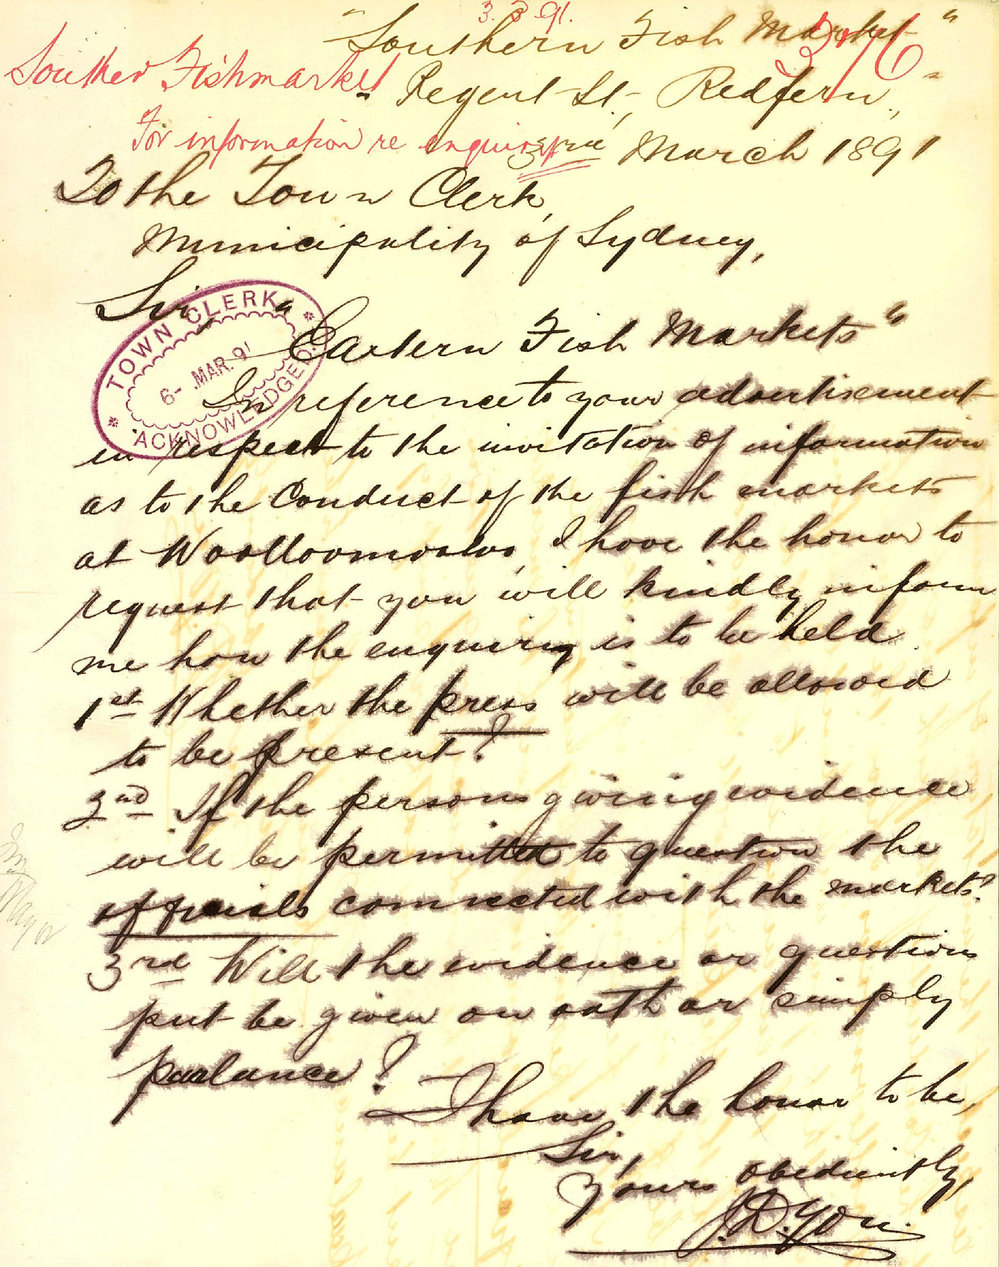 3.3.91.
"Southern Fish Market"
3176
Souther Fishmarket
"Regent St, Redfern",
For information re enquiry
3rd March 1891
To the Town Clerk,
Municipality of Sydney,
Sir,
TOWN CLERK
6- MAR.91
ACKNOWLEDGED
"Eastern Fish Markets"
In reference to your advertisement
in respect to the invitation of information
as to the Conduct of the fish markets
at Woolloomooloo, I have the honor to
request that you will kindly inform
me how the enquiry is to be held
1st Whether the press will be allowed
to be present?
2nd If the persons giving evidence
will be permitted to question the
officials connected with the markets?
3rd Will the evidence or questions
put be given on oath or simply
parlance?
I have the honor to be,
Sir,
Yours obediently,
J.D. You.
Mayor